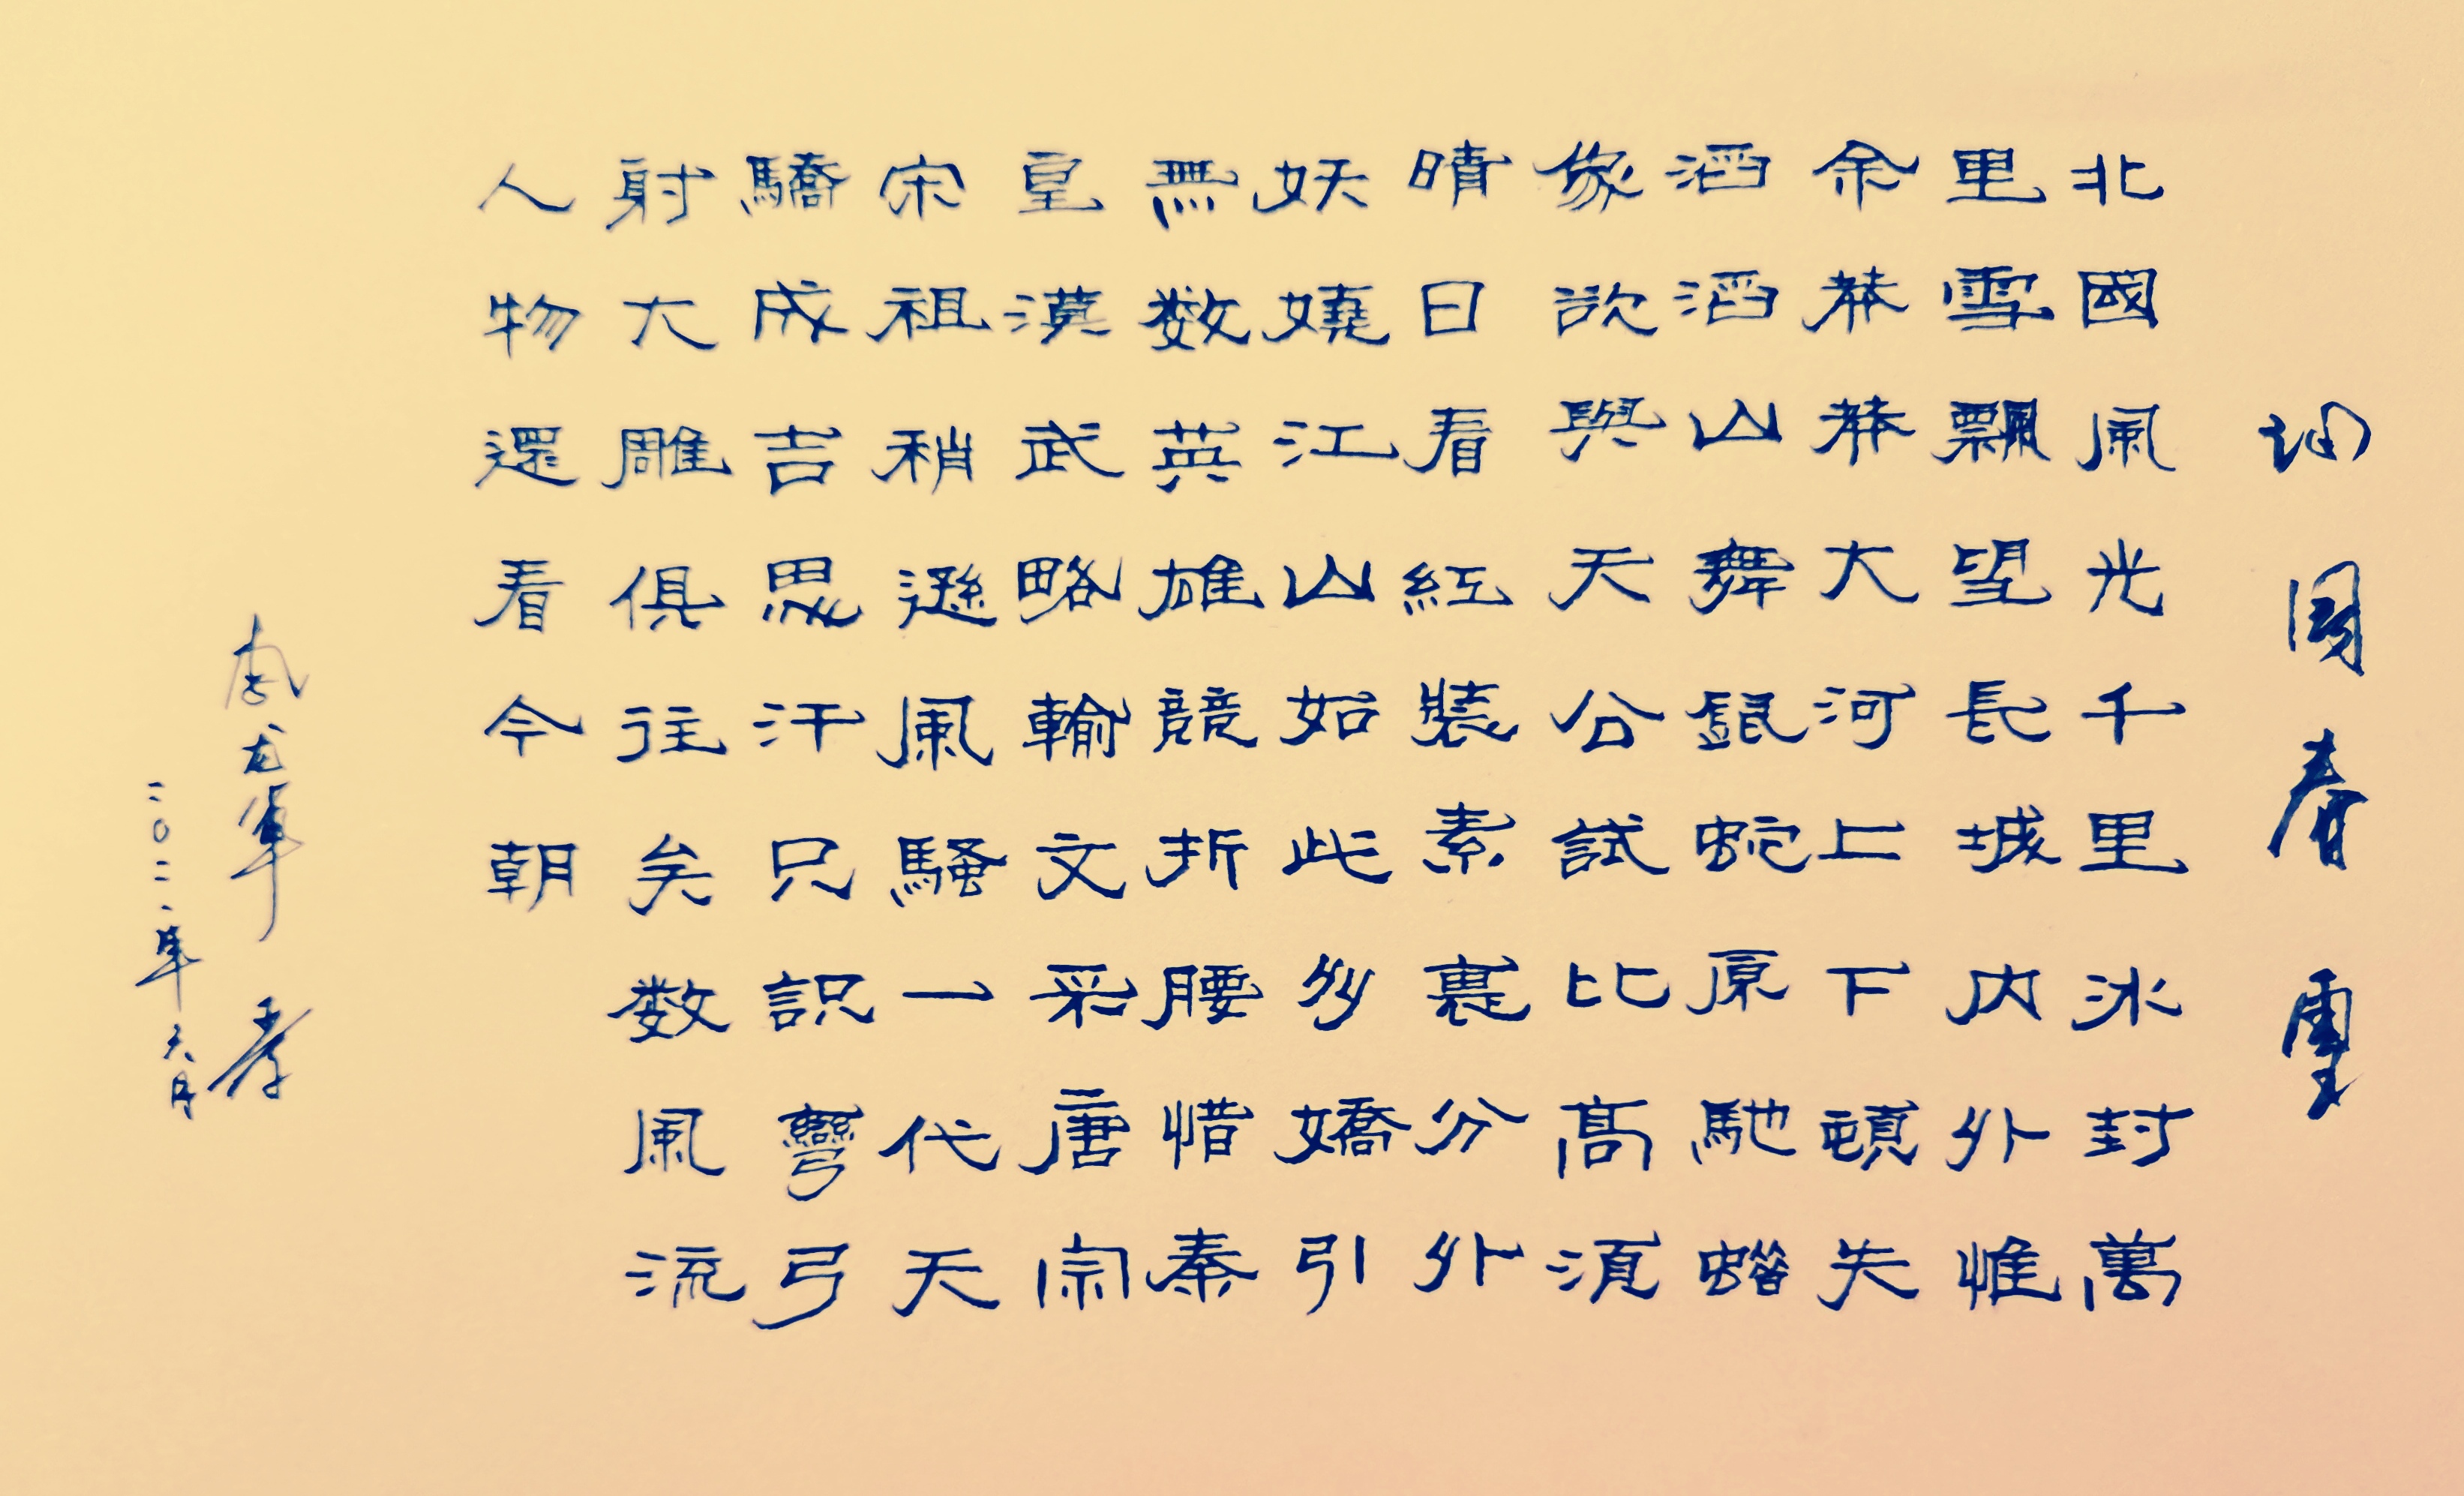 沁園春 雪
北國風光千里冰封萬
里雪飄望長城内外惟
余莽莽大河上下頓失
滔滔山舞銀蛇原馳蠟
象欲與天公試比高須
晴日看紅裝素裹分外
妖嬈江山如此多嬌引
無数英雄競折腰惜秦
皇漢武略輸文采唐宗
宋祖稍遜風騷一代天
驕成吉思汗只識彎弓
射大雕俱往矣数風流
人物還看今朝
二〇二一年六月